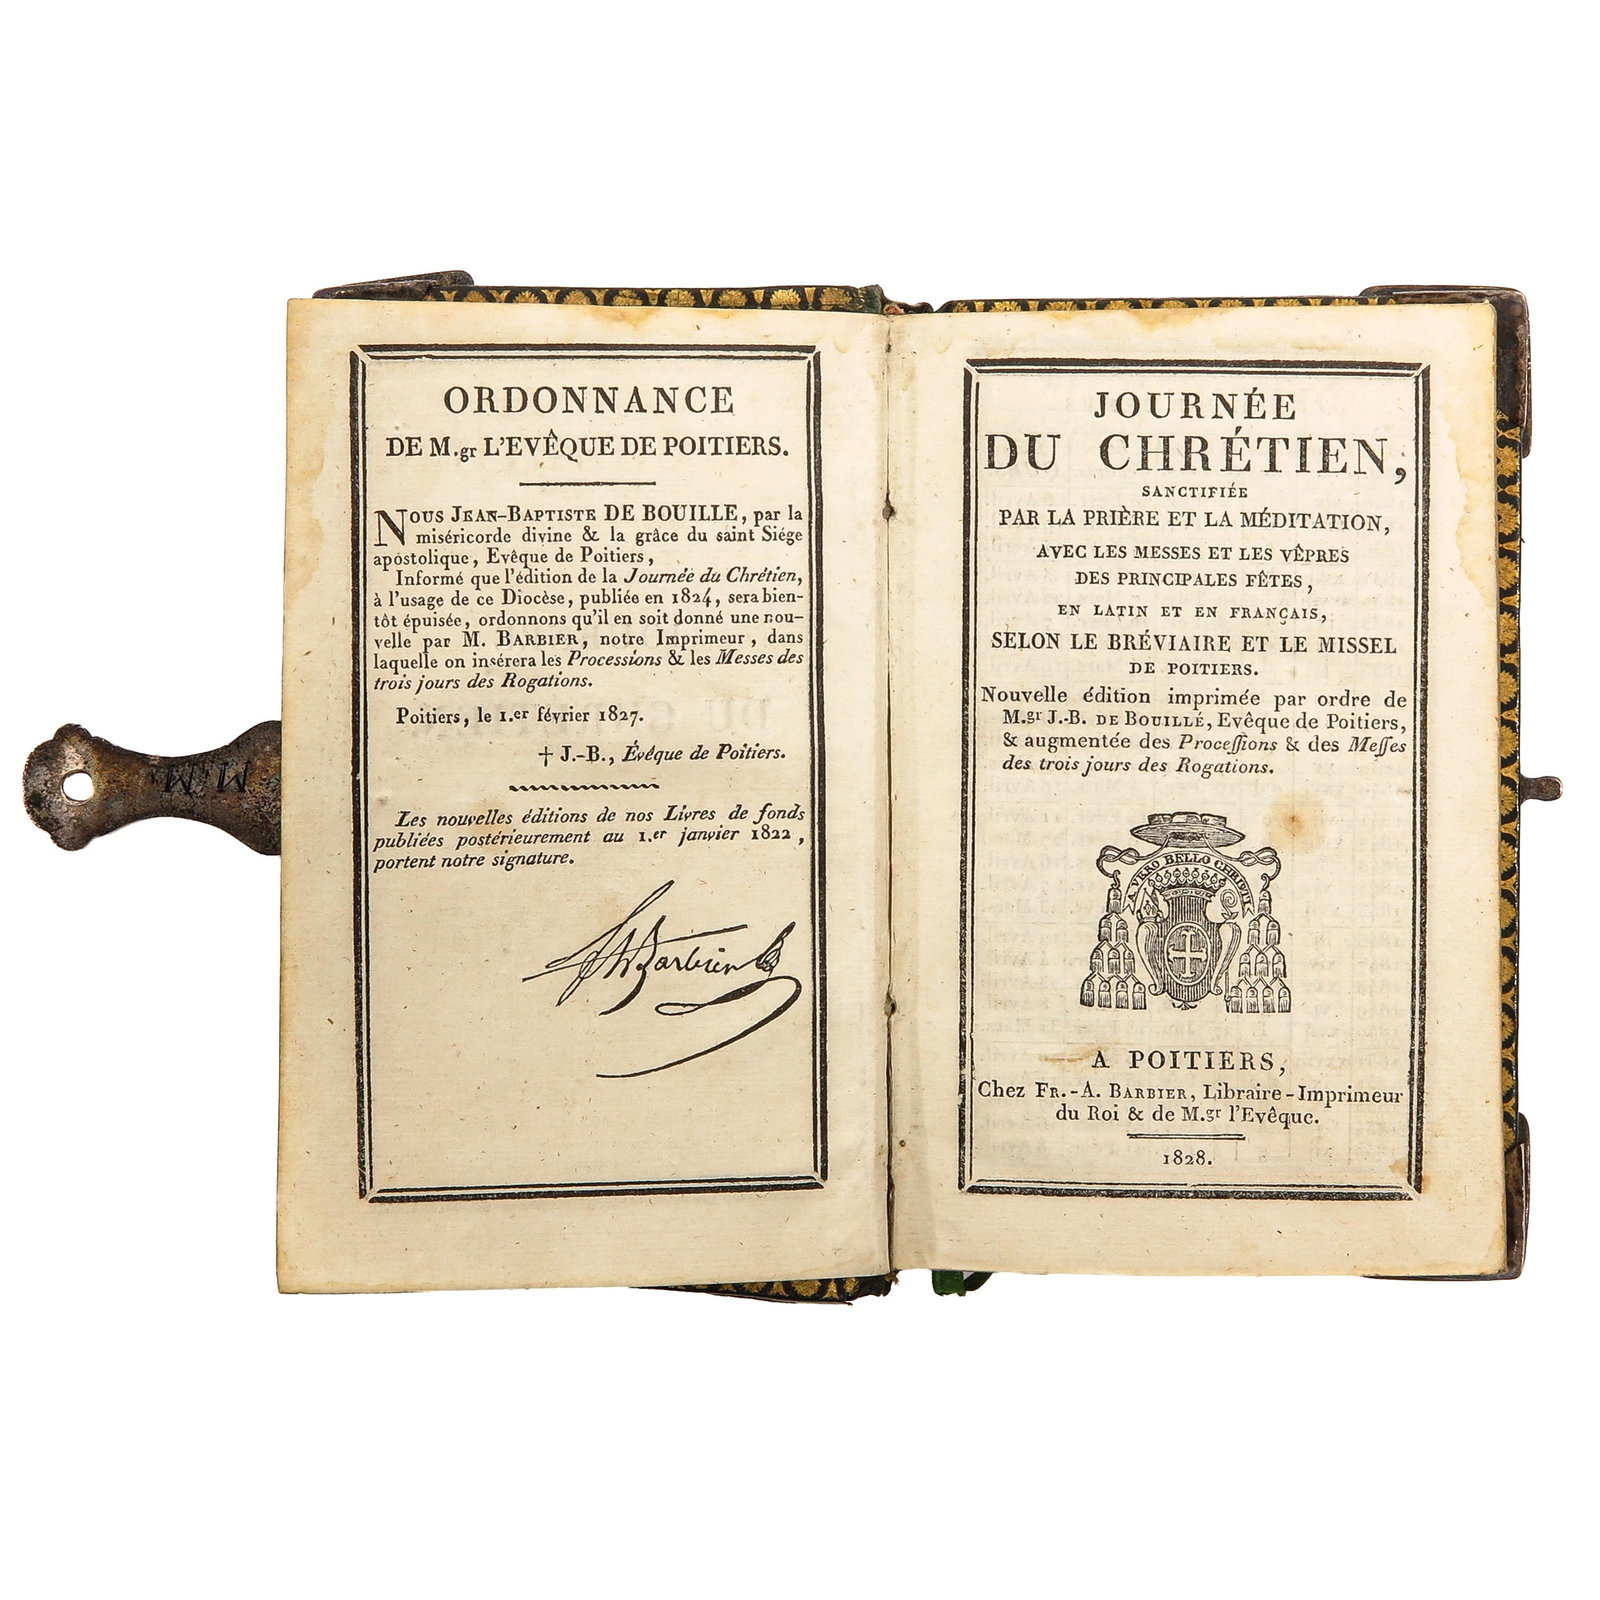 M. M.
ORDONNANCE
DE M.gr L'EVÊQUE DE POITIERS.
NOUS JEAN-BAPTISTE DE BOUILLE, par la
miséricorde divine & la grâce du saint Siége
apostolique, Evêque de Poitiers,
Informé que l'édition de la Journée du Chrétien,
à l'usage de ce Diocèse, publiée en 1824, sera bien-
tôt épuisée, ordonnons qu'il en soit donné une nou-
velle par M. BARBIER, notre Imprimeur, dans
laquelle on insérera les Processions & les Messes des
trois jours des Rogations.
Poitiers, le 1.er février 1827.
† J.-B., Évêque de Poitiers.
Les nouvelles éditions de nos Livres de fonds
publiées postérieurement au 1.er janvier 1822,
portent notre signature.
Barbier
JOURNÉE
DU CHRÉTIEN,
SANCTIFIÉE
PAR LA PRIÈRE ET LA MÉDITATION,
AVEC LES MESSES ET LES VÊPRES
DES PRINCIPALES FÊTES,
EN LATIN ET EN FRANÇAIS,
SELON LE BRÉVIAIRE ET LE MISSEL
DE POITIERS.
Nouvelle édition imprimée par ordre de
M.gr J.-B. DE BOUILLÉ, Evêque de Poitiers,
& augmentée des Proceſſions & des Meſſes
des trois jours des Rogations.
A VERO BELLO CHRISTI
A POITIERS,
Chez FR.-A. BARBIER, Libraire-Imprimeur
du Roi & de M.gr l'Evêque.
1828.